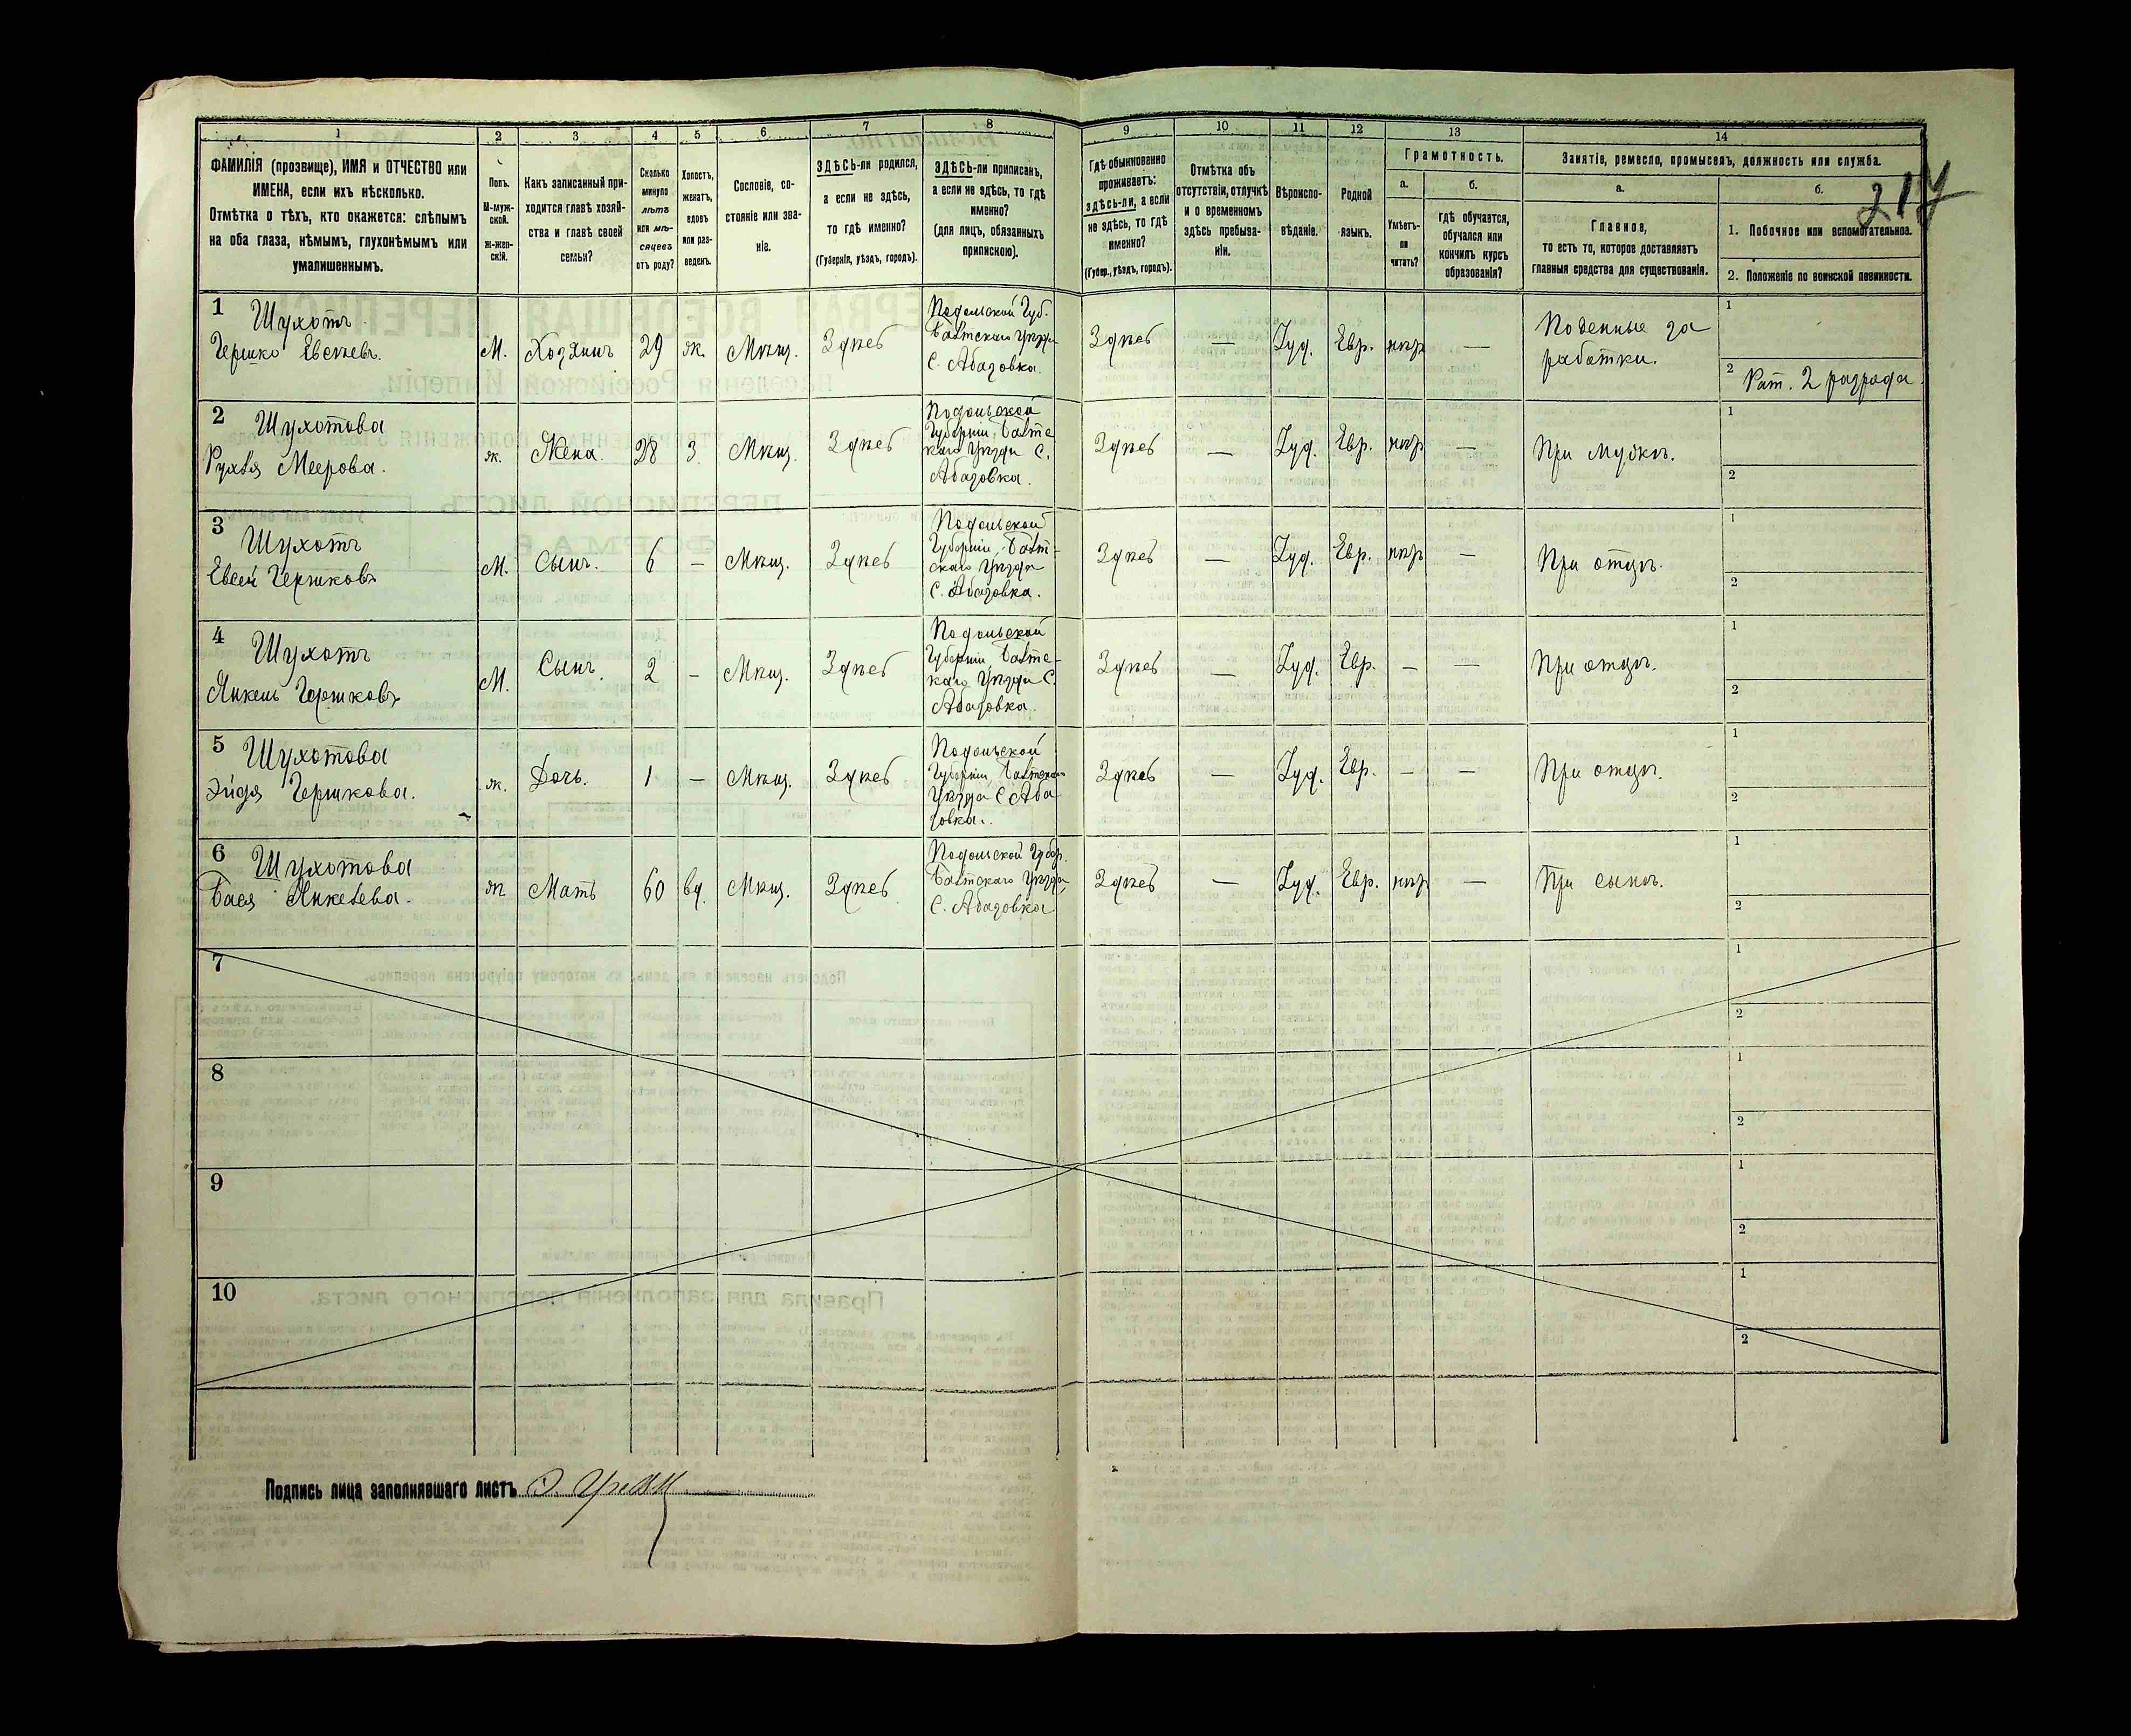 1
2
3
4
5
6
7
8
9
10
11
12
13
14
ФАМИЛІЯ (прозвище), ИМЯ и ОТЧЕСТВО или
ИМЕНА, если ихъ нѣсколько.
Отмѣтка о тѣхъ, кто окажется: слѣпымъ
на оба глаза, нѣмымъ, глухонѣмымъ или
умалишеннымъ.
Полъ.
М-муж-
ской.
Ж-жен-
скій.
Какъ записанный при-
ходится главѣ хозяй-
ства и главѣ своей
семьи?
Сколько
минуло
лѣтъ
или мѣ-
сяцевъ
отъ роду?
Холостъ,
женатъ,
вдовъ
или раз-
веденъ.
Сословіе, со-
стояніе или зва-
ніе.
ЗДѢСЬ-ли родился,
а если не здѣсь,
то гдѣ именно?
(Губернія, уѣздъ, городъ).
ЗДѢСЬ-ли приписанъ,
а если не здѣсь, то гдѣ
именно?
(для лицъ, обязанныхъ
припискою).
Гдѣ обыкновенно
проживаетъ:
здѣсь-ли, а если
не здѣсь, то гдѣ
именно?
(Губер., уѣздъ, городъ).
Отмѣтка объ
отсутствіи, отлучкѣ
и о временномъ
здѣсь пребыва-
ніи.
Вѣроиспо-
вѣданіе.
Родной
языкъ.
Грамотность.
а.
Умѣетъ-
ли
читать?
б.
гдѣ обучается,
обучался или
кончилъ курсъ
образованія?
Занятіе, ремесло, промыселъ, должность или служба.
а.
Главное,
то есть то, которое доставляетъ
главныя средства для существованія.
б.
217
1. Побочное или вспомогательное.
2. Положеніе по воинской повинности.
1 Шухотъ
Гершко Евсеевъ.
М.
Хозяинъ
29
ж.
Мѣщ.
Здѣсь
Подольской Губ.
Балтскаго Уѣзда
С. Абазовка.
Здѣсь
—
Іуд.
Евр.
нѣтъ
—
Поденные за
работки.
1
2 Рат. 2 разряда
2 Шухотова
Рухля Меерова.
ж.
Жена.
28
З.
Мѣщ.
Здѣсь
Подольской
Губерніи, Балтс
каго Уѣзда С.
Абазовка.
Здѣсь
—
Іуд.
Евр.
нѣтъ
—
При мужѣ.
1
2
3 Шухотъ
Евсей Гершковъ
М.
Сынъ.
6
—
Мѣщ.
Здѣсь
Подольской
Губерніи, Балт-
скаго Уѣзда
С. Абазовка.
Здѣсь
—
Іуд.
Евр.
нѣтъ
—
При отцѣ.
1
2
4 Шухотъ
Янкель Гершковъ
М.
Сынъ.
2
—
Мѣщ.
Здѣсь
Подольской
Губерніи, Балтс-
каго Уѣзда С.
Абазовка.
Здѣсь
—
Іуд.
Евр.
—
—
При отцѣ.
1
2
5 Шухотова
Эйдя Гершкова.
ж.
Дочь.
1
—
Мѣщ.
Здѣсь
Подольской
Губерніи, Балтскаго
Уѣзда С. Аба
зовка.
Здѣсь
—
Іуд.
Евр.
—
—
При отцѣ.
1
2
6 Шухотова
Бася Янкелева.
ж
Мать
60
вд.
Мѣщ.
Здѣсь
Подольской Губер.
Балтскаго Уѣзда,
С. Абазовка.
Здѣсь
—
Іуд.
Евр.
нѣтъ
—
При сынѣ.
1
2
7
1
2
8
1
2
9
1
2
10
1
2
Подпись лица заполнявшаго листъ